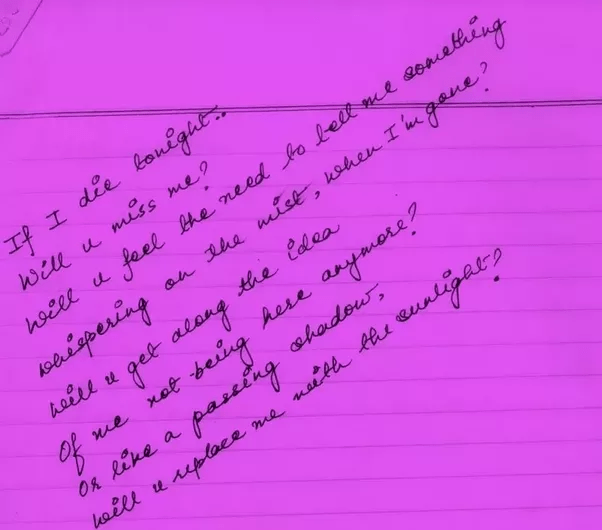 If I die tonight..
Will u miss me?
Will u feel the need to tell me something
whispering on the mist, when I'm gone?
Will u get along the idea
Of me not being here anymore?
Or like a passing shadow,
Will u replace me with the sunlight?